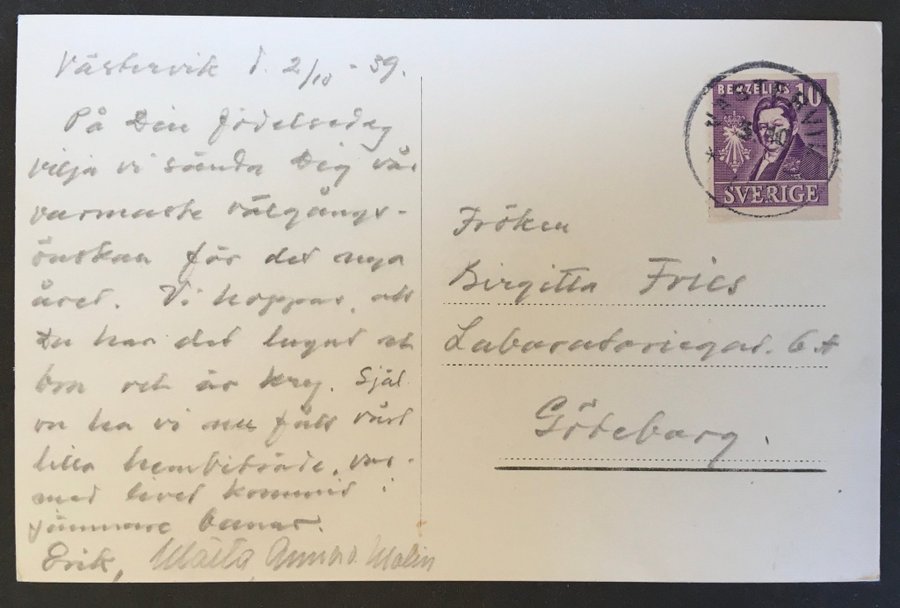 Västervik d. 2/10 - 39.
På Din födelsedag
vilja vi sända Dig vår
varmaste välgångs-
önskan för det nya
året. Vi hoppas, att
Du har det lugnt och
bra och är kry. Själ
va ha vi nu fått vårt
lilla hembiträde, var-
med livet kommit i
jämnare banor.
Erik, Märta, Anna o. Malin
VÄSTERVIK
BERZELIUS 10
SVERIGE
Fröken
Birgitta Fries
Laboratoriegat. 6 A
Göteborg.